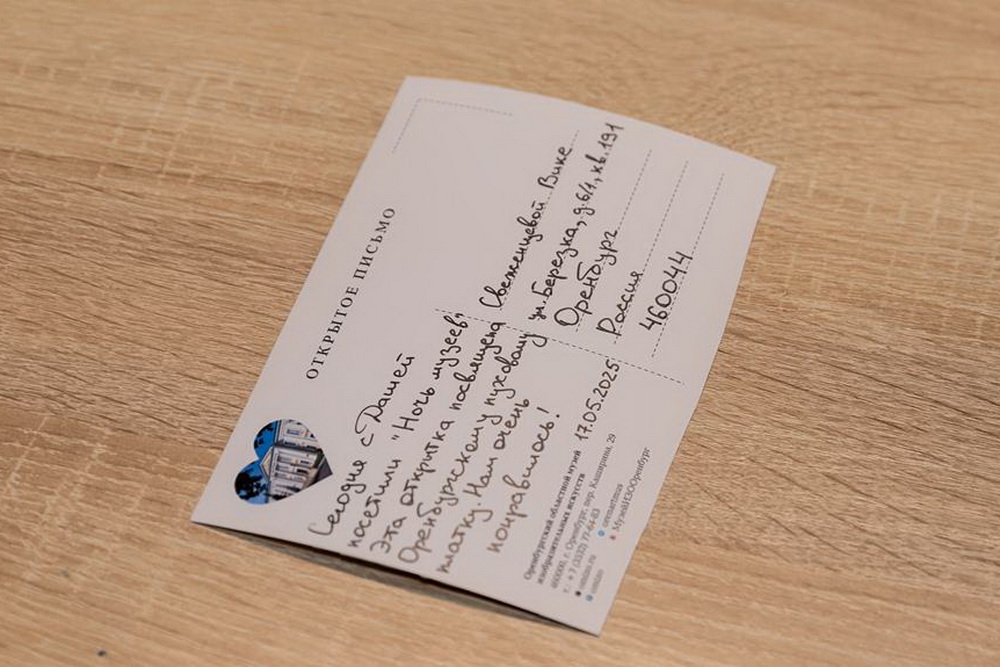 ОТКРЫТОЕ ПИСЬМО
Сегодня с Дашей
посетили "Ночь музеев"
Эта открытка посвящена
Оренбургскому пуховому
платку. Нам очень
понравилось!
17.05.2025
Свеженцевой Вике
ул. Березка, д. 6/1, кв. 191
Оренбург
Россия
460044
Оренбургский областной музей
изобразительных искусств
460000, г. Оренбург, пер. Каширина, 29
т.: +7 (3532) 77-64-83
omizo.ru
omizo
orenartmus
МузейИЗООренбург